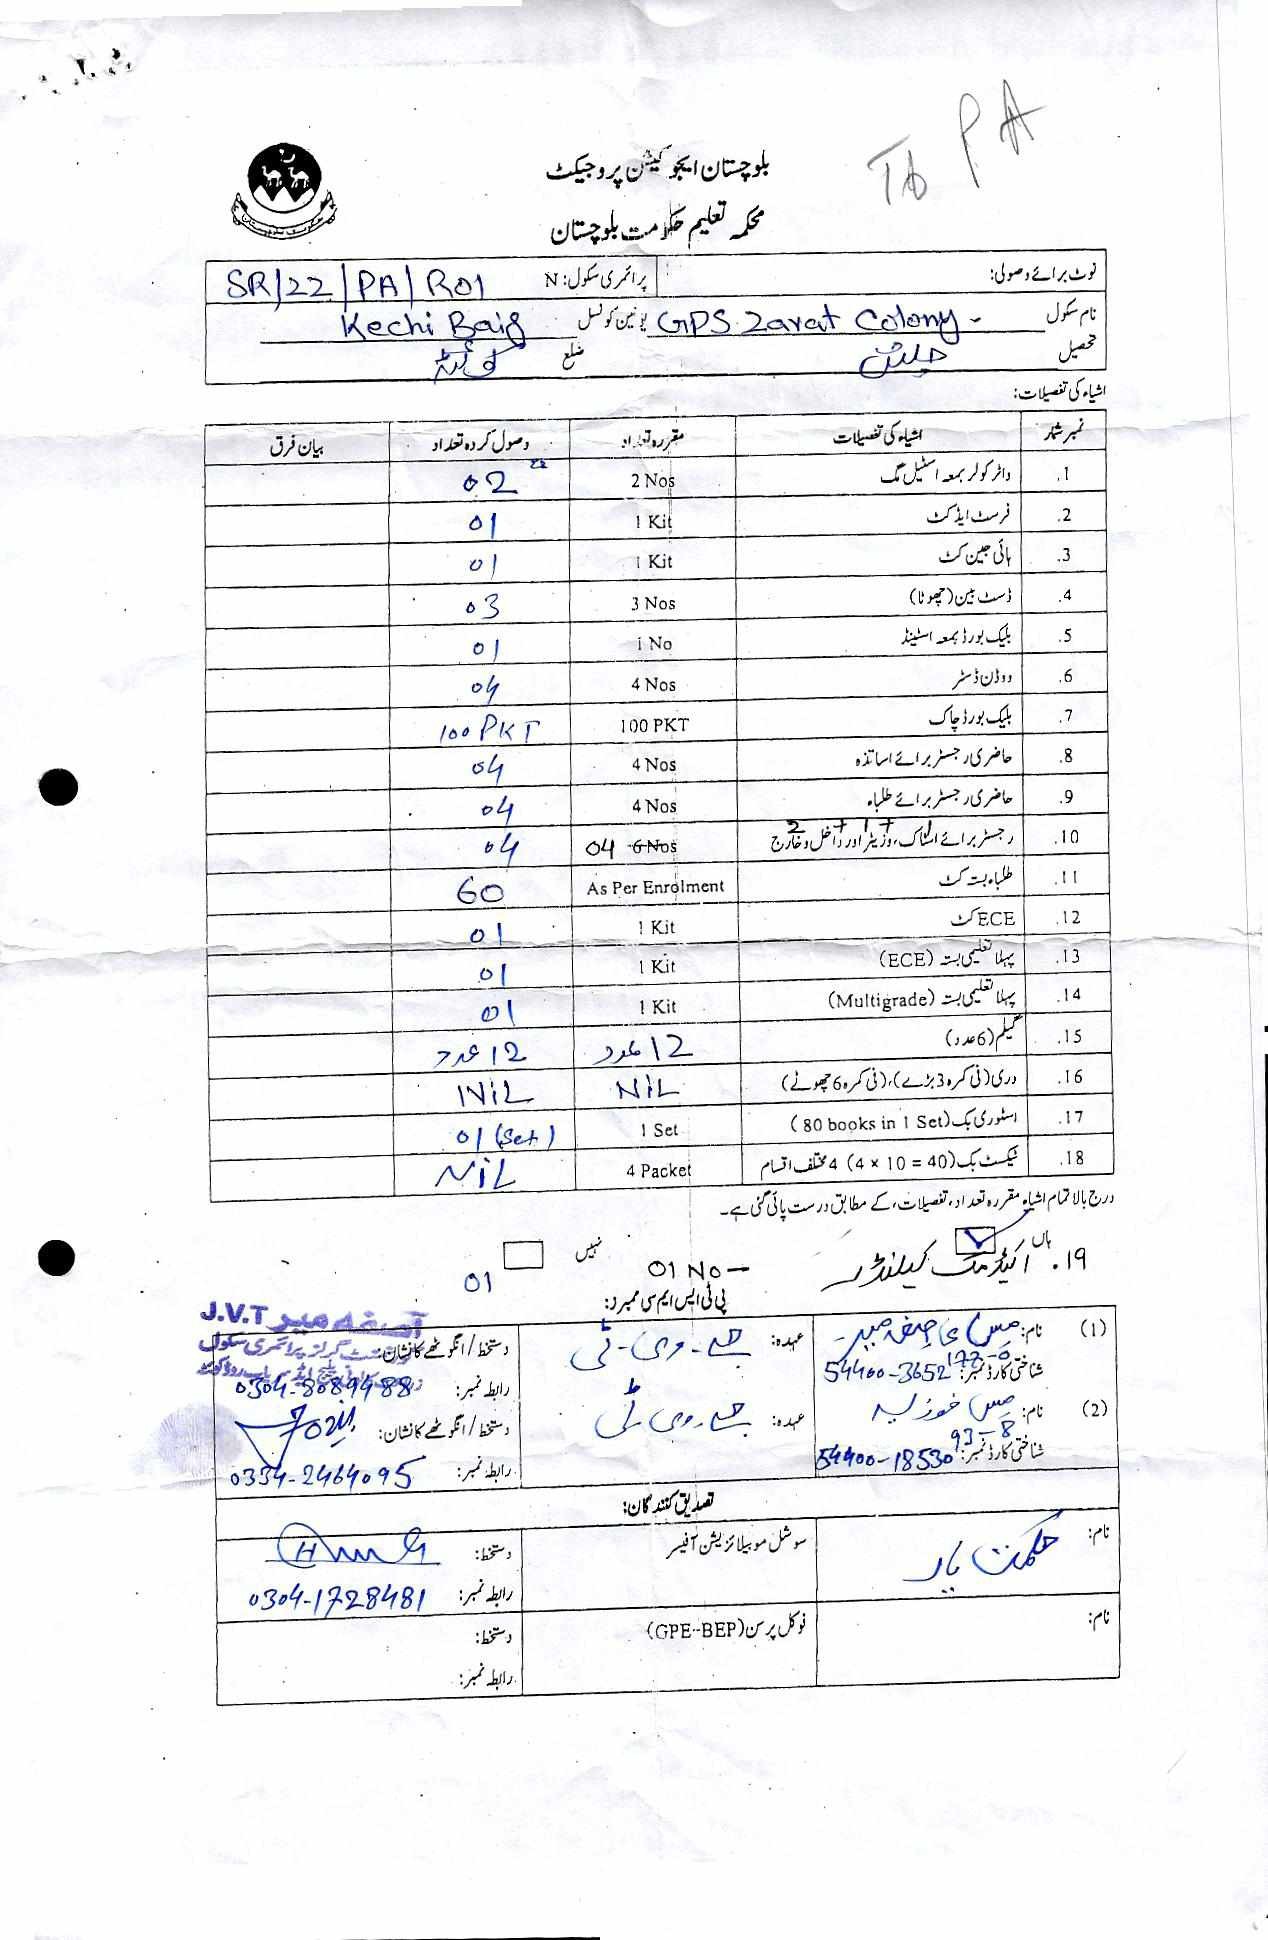 To PA
بلوچستان ایجوکیشن پروجیکٹ
محکمہ تعلیم حکومت بلوچستان
نوٹ برائے وصولی: پرائمری سکول: N SR/22/PA/R01
نام سکول GPS Zarat Colony - یونین کونسل Kechi Baig
تحصیل ضلع کوئٹہ
اشیاء کی تفصیلات:
نمبر شمار اشیاء کی تفصیلات مقررہ تعداد وصول کردہ تعداد بیان فرق
1. واٹر کولر بمعہ اسٹیل مگ 2 Nos 02
2. فرسٹ ایڈ کٹ 1 Kit 01
3. ہائی جین کٹ 1 Kit 01
4. ڈسٹ بین (چھوٹا) 3 Nos 03
5. بلیک بورڈ بمعہ اسٹینڈ 1 No 01
6. ووڈن ڈسٹر 4 Nos 04
7. بلیک بورڈ چاک 100 PKT 100 PKT
8. حاضری رجسٹر برائے اساتذہ 4 Nos 04
9. حاضری رجسٹر برائے طلباء 4 Nos 04
10. رجسٹر برائے اسٹاک، وزیٹر اور داخل و خارج 6 Nos 04 04
11. طلباء بستہ کٹ As Per Enrolment 60
12. ECE کٹ 1 Kit 01
13. پہلا تعلیمی بستہ (ECE) 1 Kit 01
14. پہلا تعلیمی بستہ (Multigrade) 1 Kit 01
15. گلیم (6 عدد) 12 عدد 12 عدد
16. دری (فی کمرہ 3 بڑے)، (فی کمرہ 6 چھوٹے) NiL NiL
17. اسٹوری بک (80 books in 1 Set) 1 Set 01 (Set)
18. ٹیکسٹ بک (4 × 10 = 40) 4 مختلف اقسام 4 Packet NiL
درج بالا تمام اشیاء مقررہ تعداد، تفصیلات، کے مطابق درست پائی گئی ہے۔
ہاں نہیں
19. اکیڈمک کیلنڈر 01 No - 01
پی ٹی ایس ایم سی ممبرز:
J.V.T
(1) نام: مس عہدہ: جے۔وی۔ٹی دستخط/انگوٹھے کا نشان:
شناختی کارڈ نمبر: 54400-3652177-0 رابطہ نمبر: 0304-8089488
(2) نام: مس فوزیہ عہدہ: جے۔وی۔ٹی دستخط/انگوٹھے کا نشان:
شناختی کارڈ نمبر: 54400-1853093-8 رابطہ نمبر: 0334-2464095
تصدیق کنندگان:
نام: حکمت یار سوشل موبیلائزیشن آفیسر دستخط:
رابطہ نمبر: 0304-1728481
نام: فوکل پرسن (GPE-BEP) دستخط:
رابطہ نمبر: